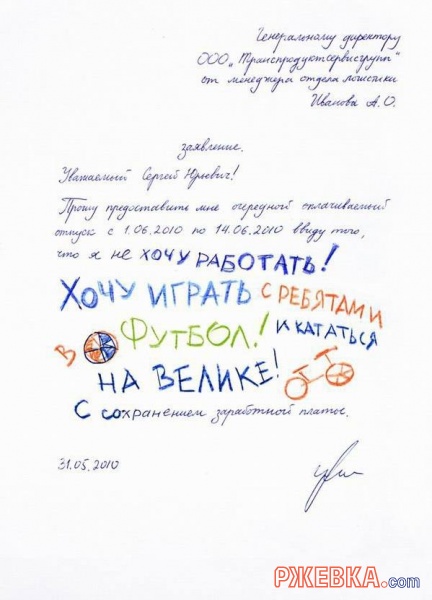 Генеральному директору
ООО „Транспродуктсервисгрупп"
от менеджера отдела логистики
Иванова А.О.
заявление.
Уважаемый Сергей Юрьевич!
Прошу предоставить мне очередной оплачиваемый
отпуск с 1.06.2010 по 14.06.2010 ввиду того,
что я не ХОЧУ РАБОТАТЬ!
ХОЧУ ИГРАТЬ С РЕБЯТАМИ
В ФУТБОЛ! И КАТАТЬСЯ
НА ВЕЛИКЕ!
С сохранением заработной платы.
31.05.2010
РЖЕВКА.com